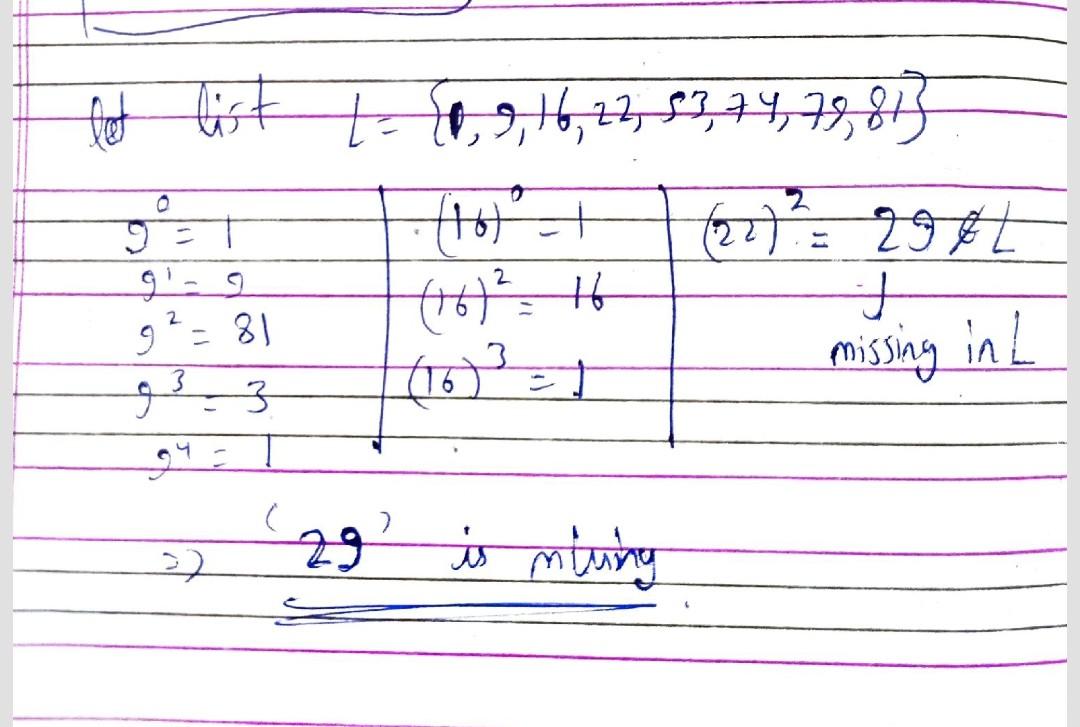 let list L = {1, 9, 16, 22, 53, 74, 79, 81}
9⁰ = 1
9¹ = 9
9² = 81
9³ = 3
9⁴ = 1
(16)⁰ = 1
(16)² = 16
(16)³ = 1
(22)² = 29 ∉ L
missing in L
=> '29' is missing